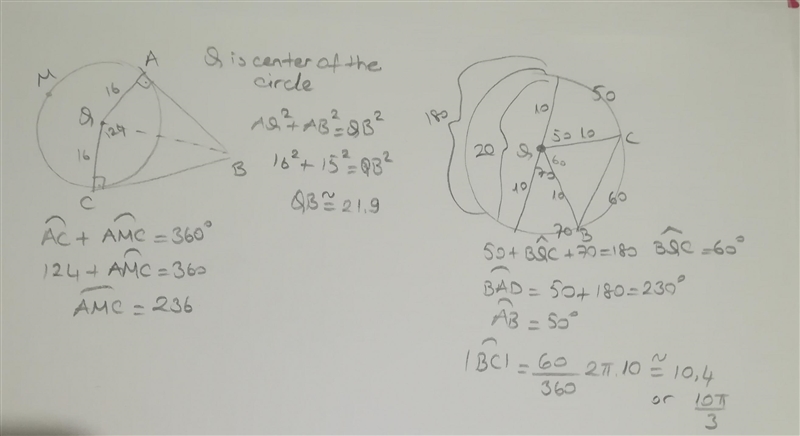 Q is center of the
circle
M
A
16
Q
124
16
B
C
AQ² + AB² = QB²
16² + 15² = QB²
QB ≅ 21,9
AC + AMC = 360°
124 + AMC = 360
AMC = 236
180
20
10
50
50
10
C
Q
60
70
10
10
60
70
B
50 + BQC + 70 = 180 BQC = 60°
BAD = 50 + 180 = 230°
AB = 50°
|BC| = 60/360 2π.10 ≅ 10,4
or 10π/3